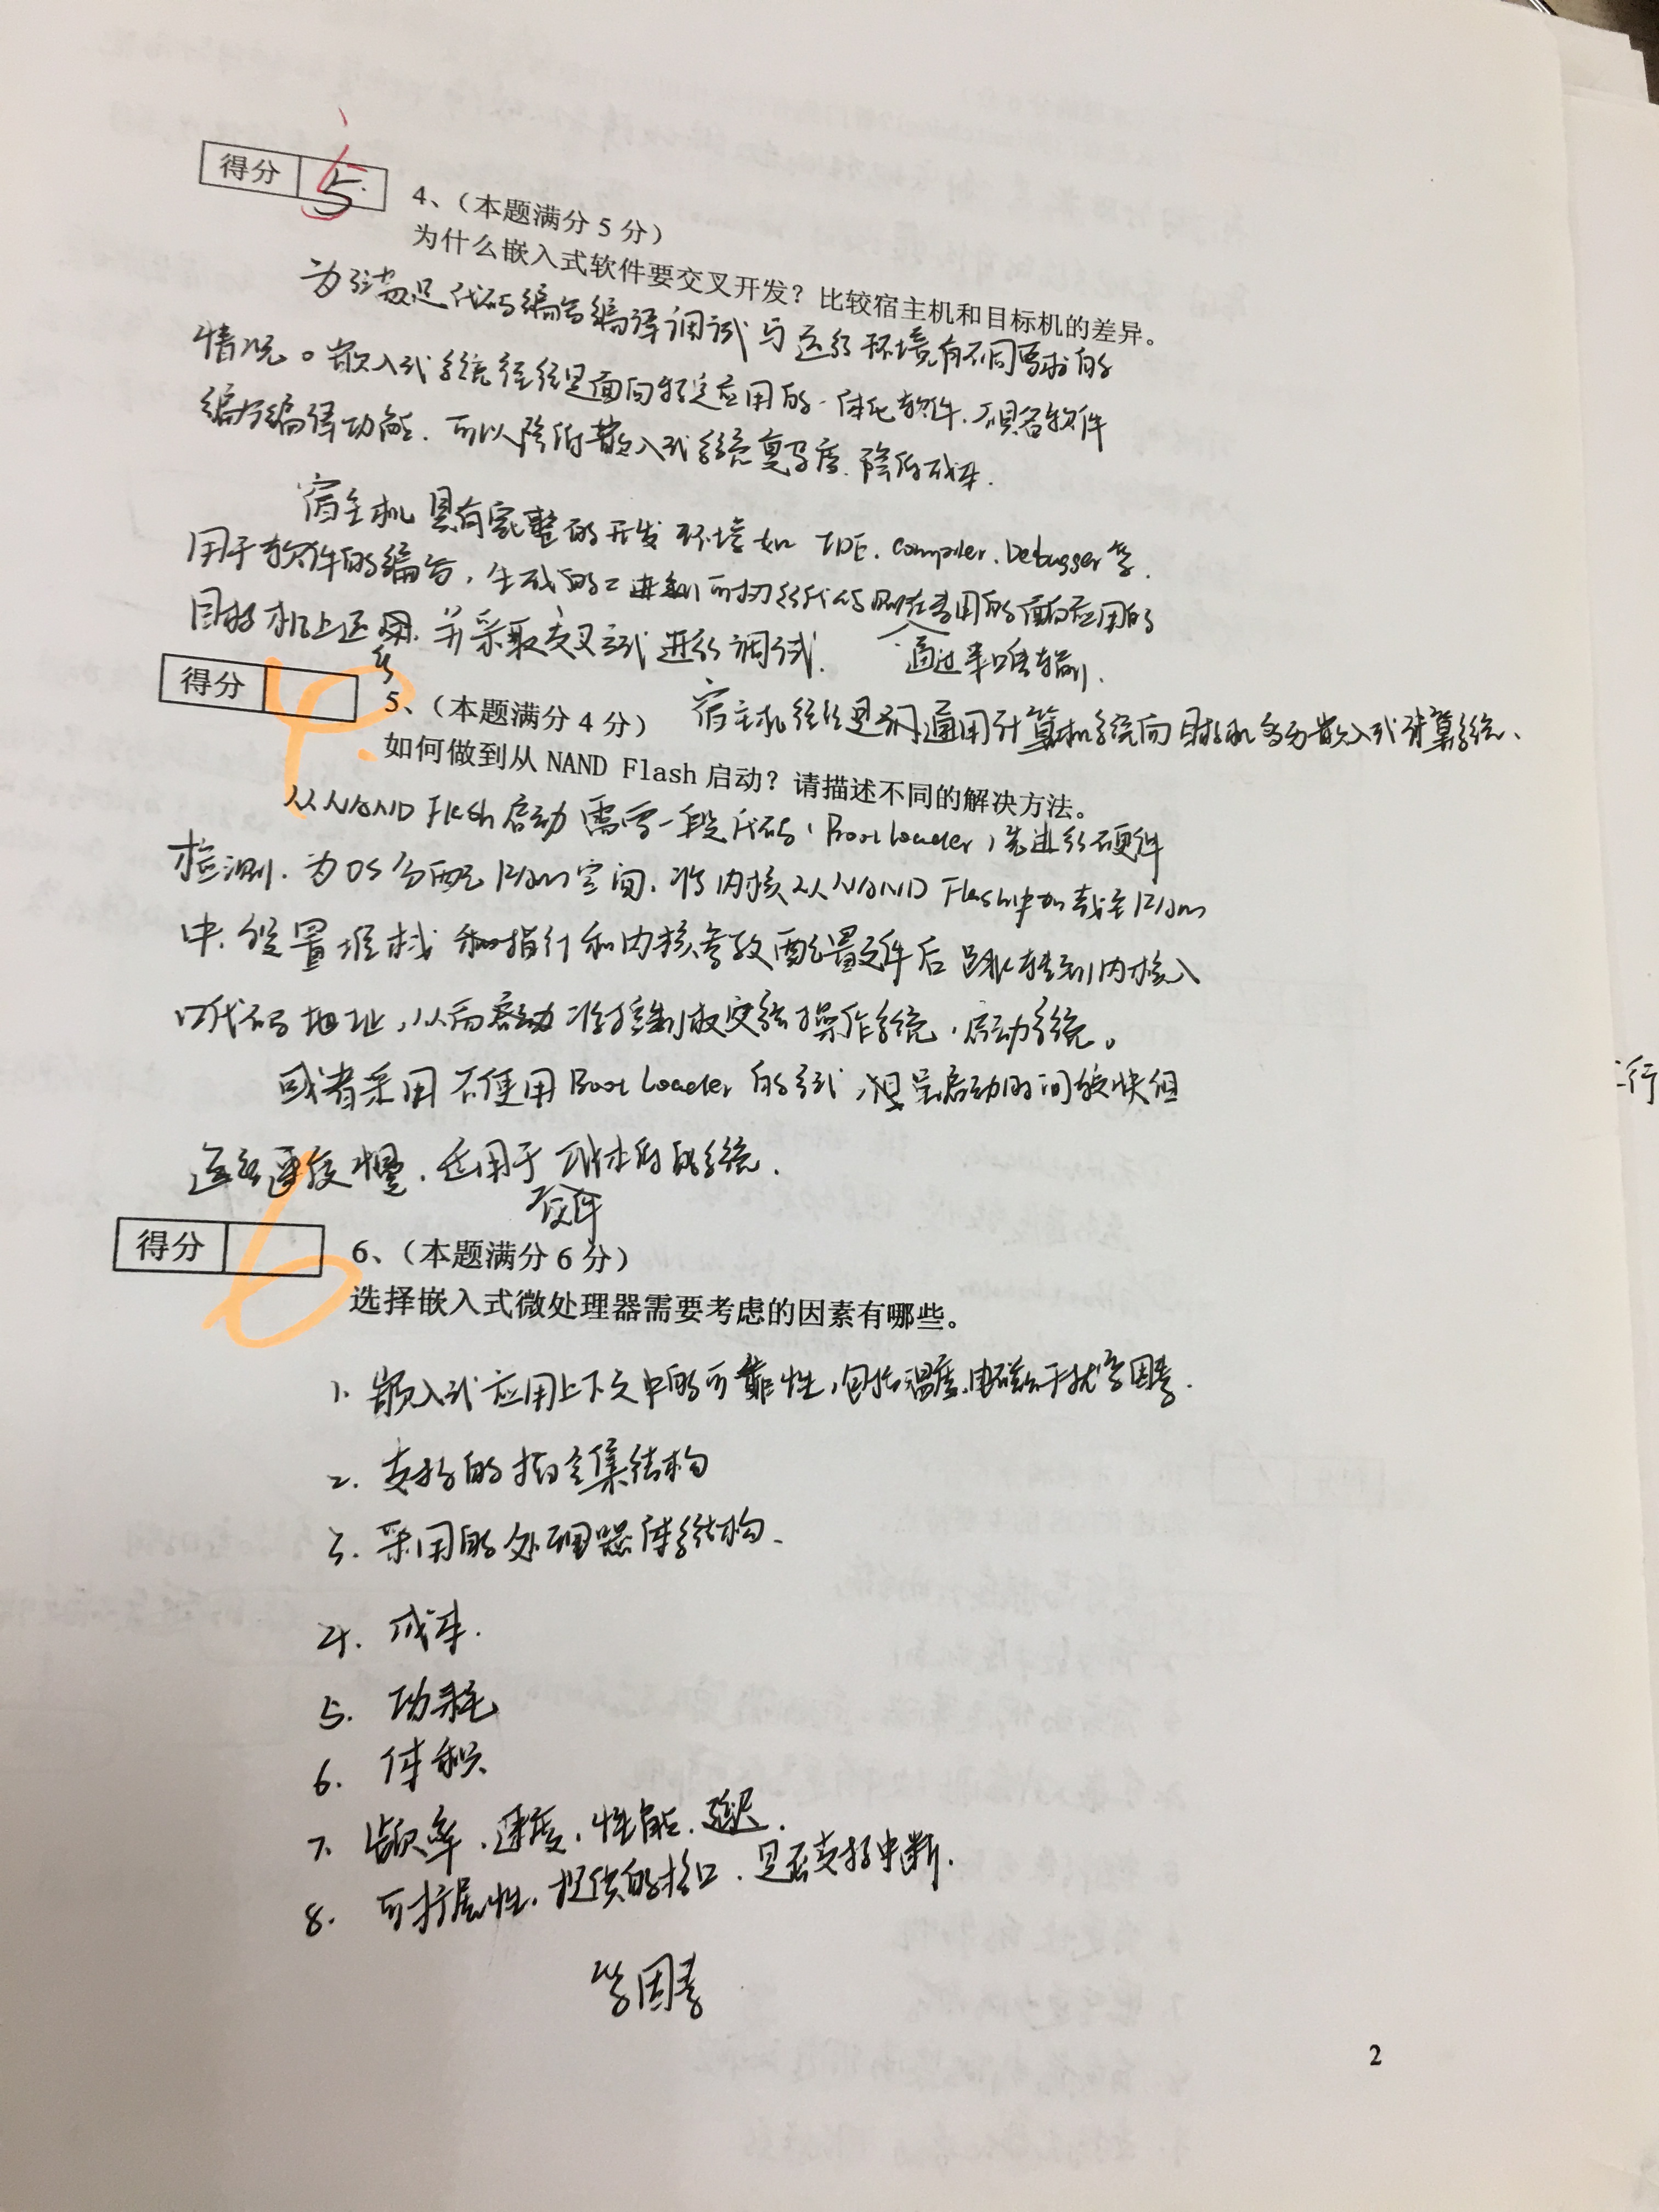 得分 5
4、（本题满分 5 分）
为什么嵌入式软件要交叉开发？比较宿主机和目标机的差异。
为了满足代码编写编译调试与运行环境有不同要求的
情况。嵌入式系统往往是面向特定应用的一体化软件，不具备软件
编写编译功能，可以降低嵌入式系统复杂度，降低成本.
宿主机具有完整的开发环境如 IDE、compiler、Debugger等.
用于软件的编写，生成的二进制可执行代码则在专用的面向应用的
目标机上运行，并采取交叉方式进行调试. 通过串口传输.
得分 4
5、（本题满分 4 分） 宿主机往往是通用计算机系统而目标机多为嵌入式计算系统、
如何做到从 NAND Flash 启动？请描述不同的解决方法。
从NAND Flash 启动需要一段代码（Boot Loader）先进行硬件
检测、为OS分配Ram空间、将内核从NAND Flash中加载至Ram
中、设置堆栈指针和内核参数配置文件后跳转到内核入
口代码地址，从而将控制权交给操作系统，启动系统。
或者采用不使用Boot Loader 的方式，启动时间较快但
运行速度慢，适用于成本低的系统.
得分 6
6、（本题满分 6 分）
选择嵌入式微处理器需要考虑的因素有哪些。
1. 嵌入式应用上下文中的可靠性，包括温度、电磁干扰等因素.
2. 支持的指令集结构
3. 采用的处理器体系结构、
4. 成本.
5. 功耗
6. 体积
7. 频率、速度、性能、延迟.
8. 可扩展性、提供的接口、是否支持中断.
等因素
2
行